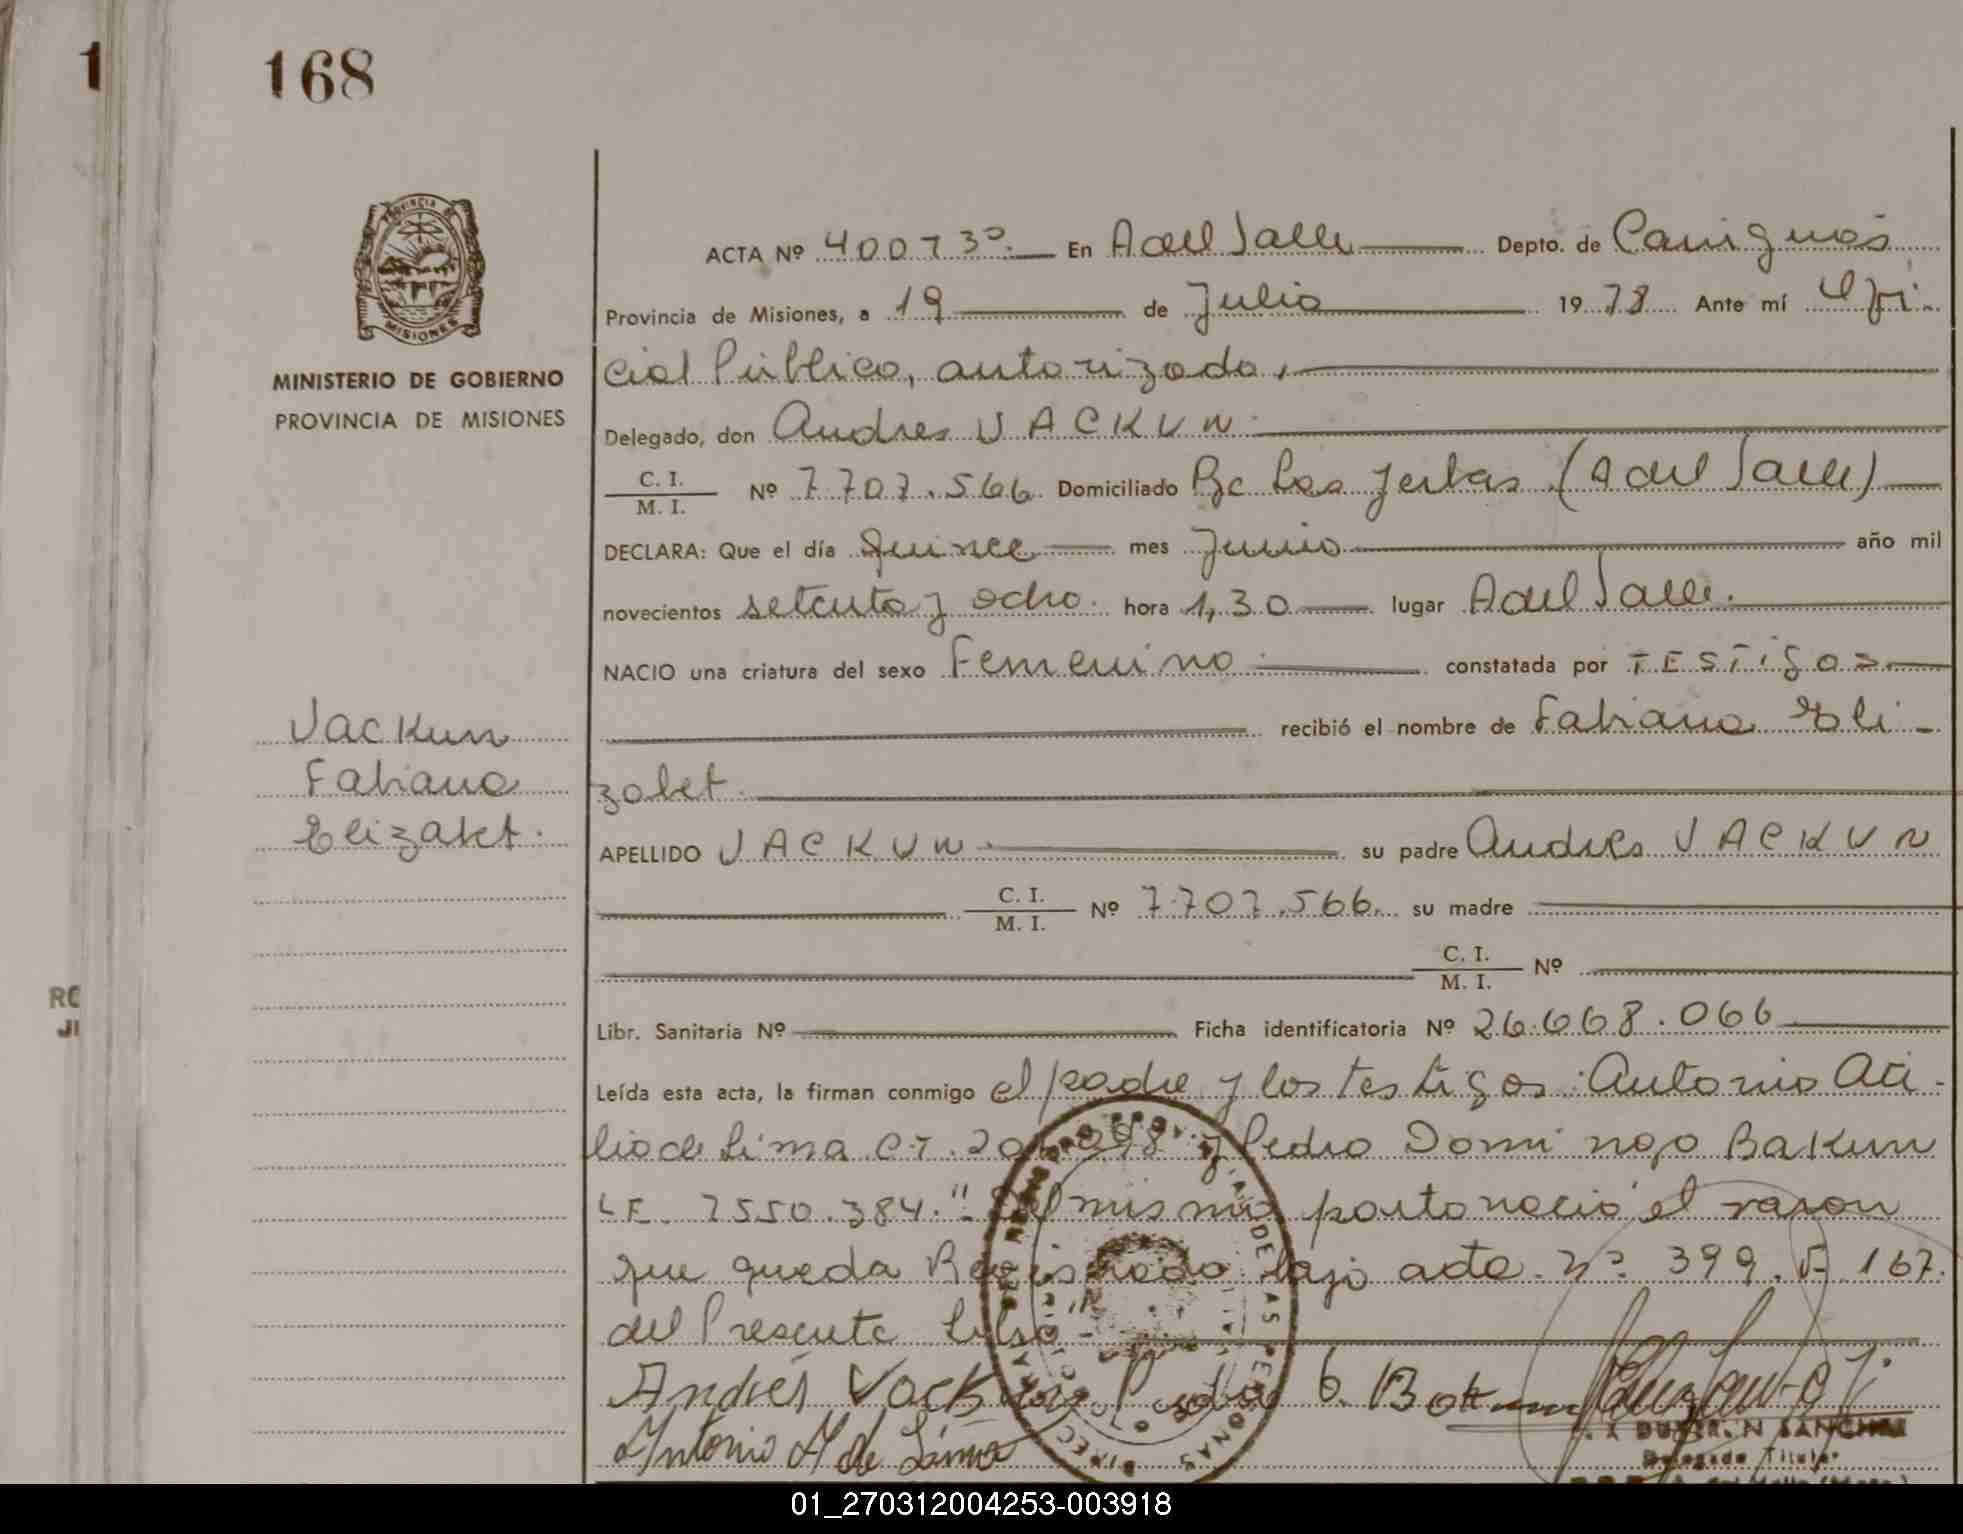 1
168
PROVINCIA DE
MISIONES
MINISTERIO DE GOBIERNO
PROVINCIA DE MISIONES
ACTA Nº 400 T 3º. En A del Valle Depto. de Cainguás
Provincia de Misiones, a 19 de Julio 1978 Ante mí Ofi-
cial Público, autorizado,
Delegado, don Andres VACKUN
C. I.
M. I. Nº 7.707.566 Domiciliado Pje Las Yerbas (A del Valle)
DECLARA: Que el día quince mes Junio año mil
novecientos setenta y ocho. hora 1,30 lugar A del Valle.
NACIO una criatura del sexo Femenino constatada por TESTigos
recibió el nombre de Fabiana Eli-
zabet.
Vackun
Fabiana
Elizabet.
APELLIDO VACKUN su padre Andres VACKUN
C. I.
M. I. Nº 7.707.566. su madre
C. I.
M. I. Nº
RO
JI
Libr. Sanitaria Nº Ficha identificatoria Nº 26.668.066
Leída esta acta, la firman conmigo el padre y los testigos: Antonio Ati-
lio de Lima C.I. y Pedro Domingo Bakun
LE. 7550.384." Del mismo parto nació el varon
que queda Registrado bajo acta nº 399. F 167.
del Presente Libro
Andrés Vackun Pedro D. Bakun
Antonio A de Lima
SANCHEZ
Delegado Titular
01_270312004253-003918